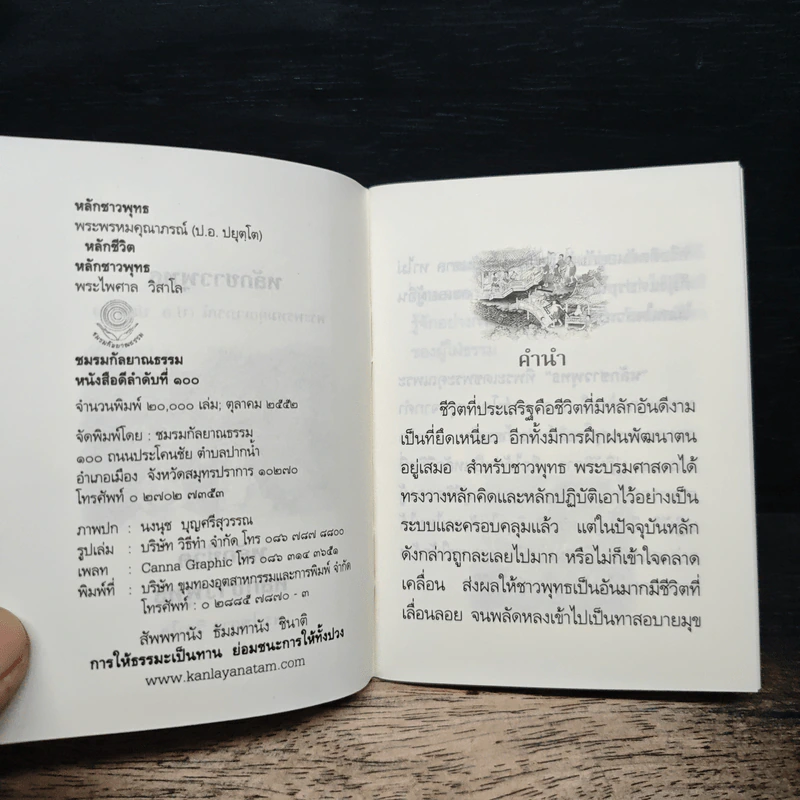 หลักชาวพุทธ
พระพรหมคุณาภรณ์ (ป.อ. ปยุตฺโต)
หลักชีวิต
หลักชาวพุทธ
พระไพศาล วิสาโล
ชมรมกัลยาณธรรม
ชมรมกัลยาณธรรม
หนังสือดีลำดับที่ ๑๐๐
จำนวนพิมพ์ ๒๐,๐๐๐ เล่ม; ตุลาคม ๒๕๕๒
จัดพิมพ์โดย : ชมรมกัลยาณธรรม
๑๐๐ ถนนประโคนชัย ตำบลปากน้ำ
อำเภอเมือง จังหวัดสมุทรปราการ ๑๐๒๗๐
โทรศัพท์ ๐ ๒๗๐๒ ๗๓๕๓
ภาพปก : นงนุช บุญศรีสุวรรณ
รูปเล่ม : บริษัท วิธีทำ จำกัด โทร ๐๘๖ ๗๘๗ ๘๘๐๐
เพลท : Canna Graphic โทร ๐๘๖ ๓๑๔ ๓๖๕๑
พิมพ์ที่ : บริษัท ขุมทองอุตสาหกรรมและการพิมพ์ จำกัด
โทรศัพท์ : ๐ ๒๘๘๕ ๗๘๗๐ - ๓
สัพพทานัง ธัมมทานัง ชินาติ
การให้ธรรมะเป็นทาน ย่อมชนะการให้ทั้งปวง
www.kanlayanatam.com
คำนำ
ชีวิตที่ประเสริฐคือชีวิตที่มีหลักอันดีงาม
เป็นที่ยึดเหนี่ยว อีกทั้งมีการฝึกฝนพัฒนาตน
อยู่เสมอ สำหรับชาวพุทธ พระบรมศาสดาได้
ทรงวางหลักคิดและหลักปฏิบัติเอาไว้อย่างเป็น
ระบบและครอบคลุมแล้ว แต่ในปัจจุบันหลัก
ดังกล่าวถูกละเลยไปมาก หรือไม่ก็เข้าใจคลาด
เคลื่อน ส่งผลให้ชาวพุทธเป็นอันมากมีชีวิตที่
เลื่อนลอย จนพลัดหลงเข้าไปเป็นทาสอบายมุข